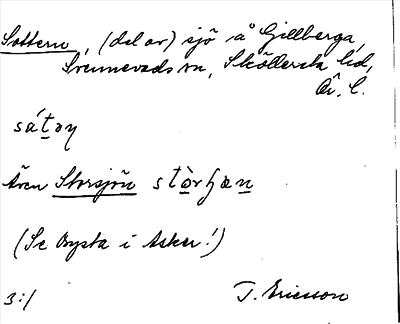 Sottern, (del av) sjö å Gillberga,
Svennevads sn, Sköllersta hd,
Ör. l.
sátəŋ
även Storsjön
(Se Bysta i Asker!)
3:/ T. Ericsson